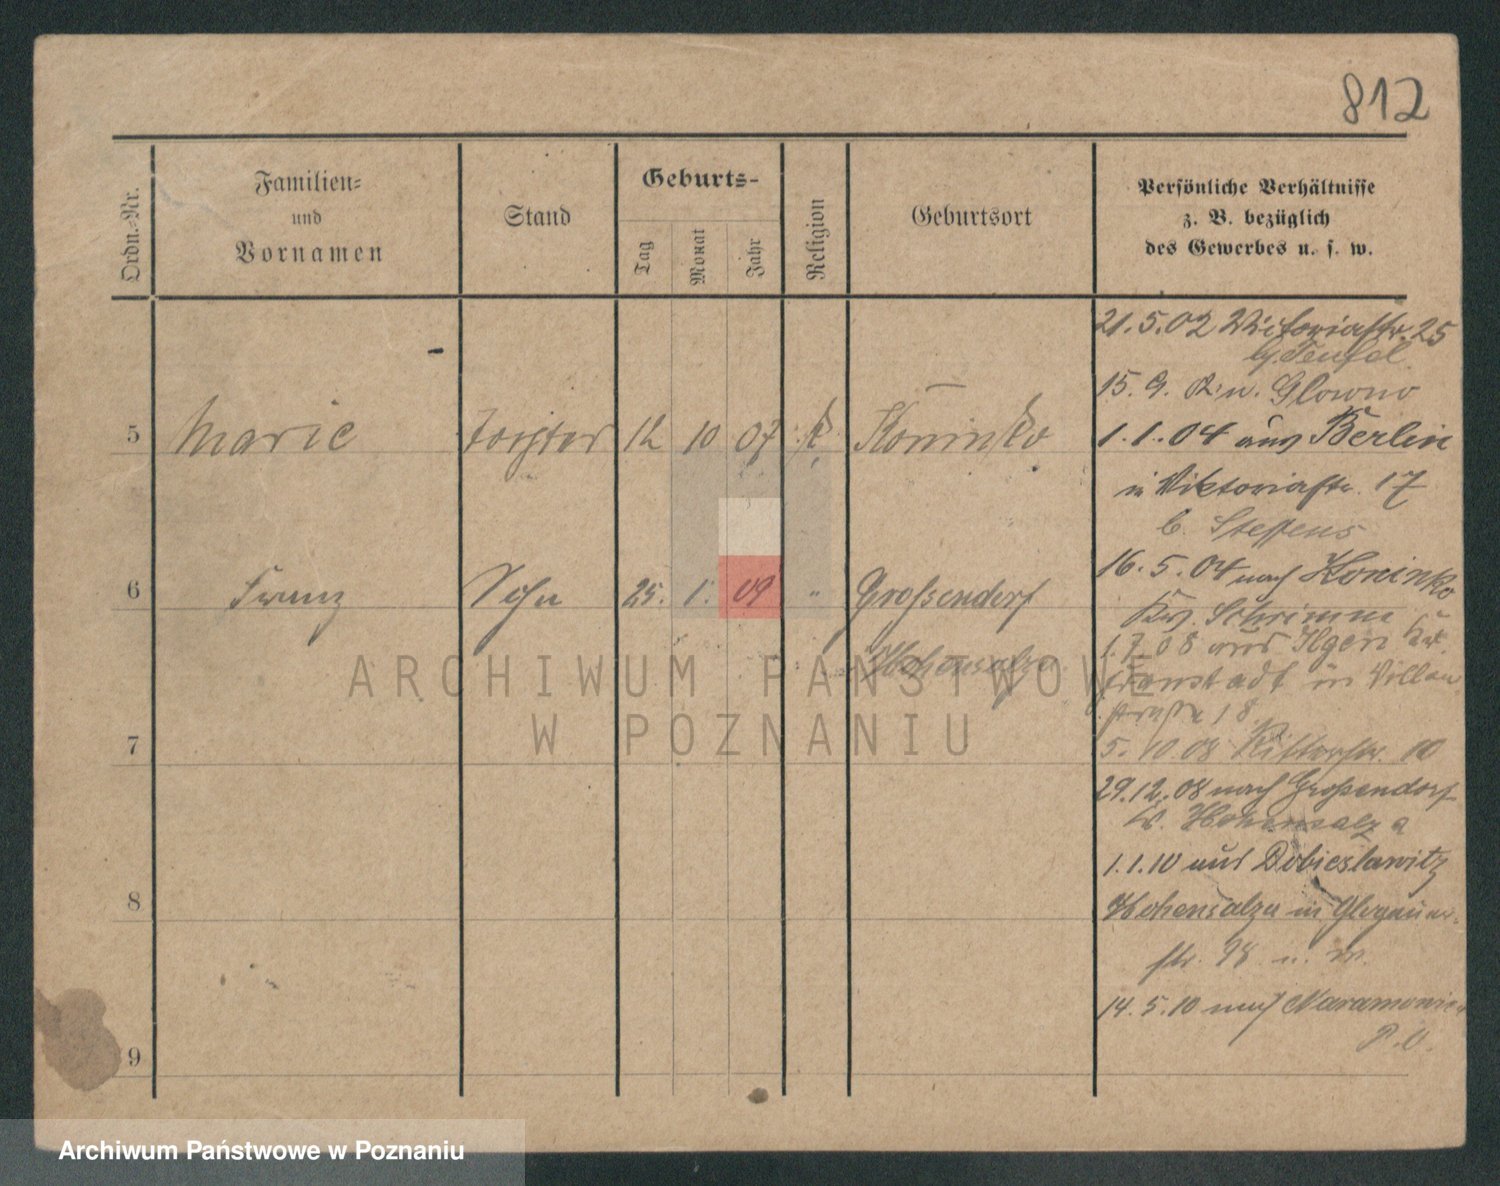 812
Ordn.-Nr.
Familien-
und
Vornamen
Stand
Geburts-
Tag
Monat
Jahr
Religion
Geburtsort
Persönliche Verhältnisse
z. B. bezüglich
des Gewerbes u. s. w.
21.5.02 Viktoriastr. 25
b. Teufel
15. 9. n. Glowno
5 Marie Tochter 12 10 07 k. Koninko
1.1.04 aus Berlin
in Viktoriastr. 17
b. Steffens
6 Franz Sohn 25. 1. 09 " Grossendorf
Hohensalza
16.5.04 nach Koninko
Kr. Schrimm
1.7.08 aus Ilgen Kr.
Fraustadt in Villen
strasse 18
7
5.10.08 Ritterstr. 10
29.12.08 nach Grossendorf
Kr. Hohensalza
8
1.1.10 aus Dobieslawitz
Hohensalza in Glogauer-
str. 98 u. w.
14.5.10 nach Naramowice
P. O.
9
ARCHIWUM PAŃSTWOWE
W POZNANIU
Archiwum Państwowe w Poznaniu